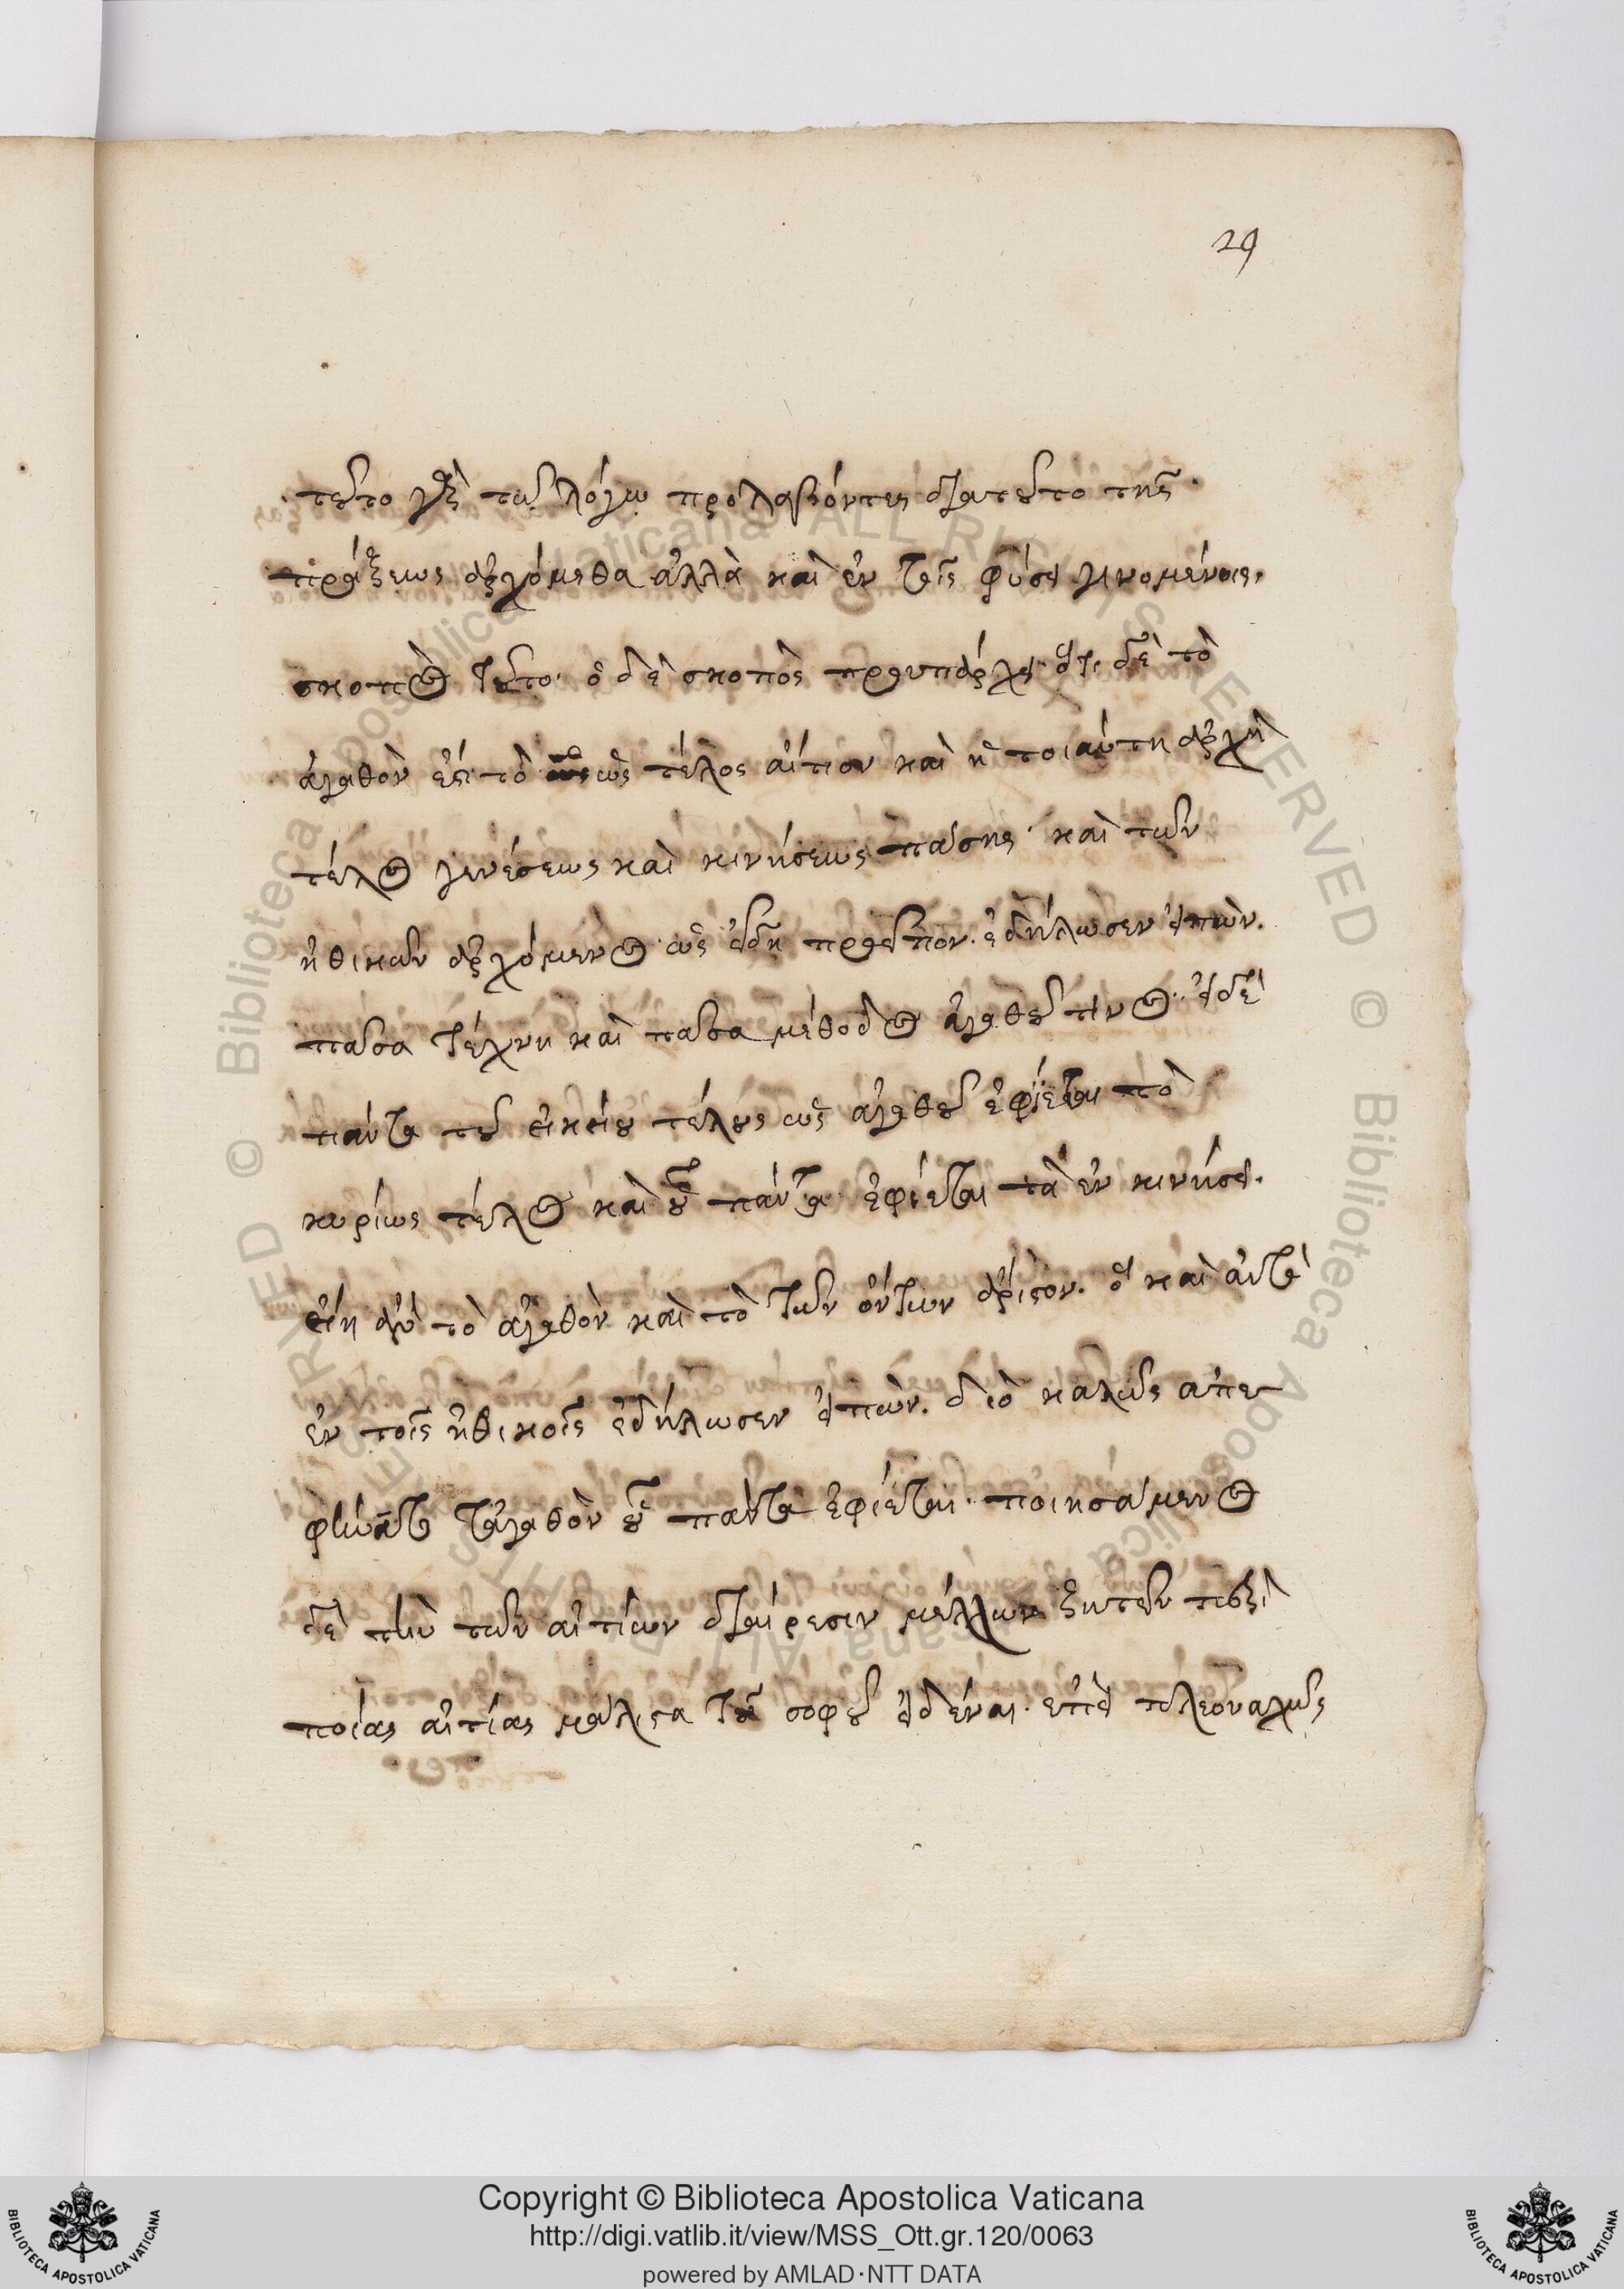 29
τοῦτο γὰρ τῷ λόγῳ προλαβόντες διατοῦτο τῆς
πράξεως ἀρχόμεθα ἀλλὰ καὶ ἐν ταῖς φύσει γινομένοις.
σκοπὸς τοῦτο. ὁ δὲ σκοπὸς προυπάρχει. ὅτι δὲ τὸ
ἀγαθὸν ἐστὶ τὸ ὡς τέλος αἴτιον καὶ ἡ τοιαύτη ἀρχὴ
τέλος γενέσεως καὶ κινήσεως πάσης. καὶ τῶν
ἠθικῶν ἀρχόμενος ὡς ἤδη προεῖπον. ἐδήλωσεν εἰπὼν.
πᾶσα τέχνη καὶ πᾶσα μέθοδος ἀγαθοῦ τινος. εἰ δὲ
πάντα τοῦ οἰκείου τέλους ὡς ἀγαθοῦ ἐφίεται τὸ
κυρίως τέλος καὶ οὗ πάντα ἐφίεται τὰ ἐν κινήσει.
εἴη ἂν τὸ ἀγαθὸν καὶ τὸ τῶν ὄντων ἄριστον. ὃ καὶ αὐτὸ
ἐν τοῖς ἠθικοῖς ἐδήλωσεν εἰπὼν. διὸ καλῶς ἀπε
φήναντο τἀγαθὸν οὗ πάντα ἐφίεται. ποιησάμενος
δὲ τὴν τῶν αἰτίων διαίρεσιν μέλλων ζητεῖν περὶ
ποίας αἰτίας μάλιστα τοῦ σοφοῦ εἰδέναι. ἐπεὶ πλεοναχῶς
Copyright © Biblioteca Apostolica Vaticana
http://digi.vatlib.it/view/MSS_Ott.gr.120/0063
powered by AMLAD·NTT DATA
BIBLIOTECA APOSTOLICA VATICANA
BIBLIOTECA APOSTOLICA VATICANA